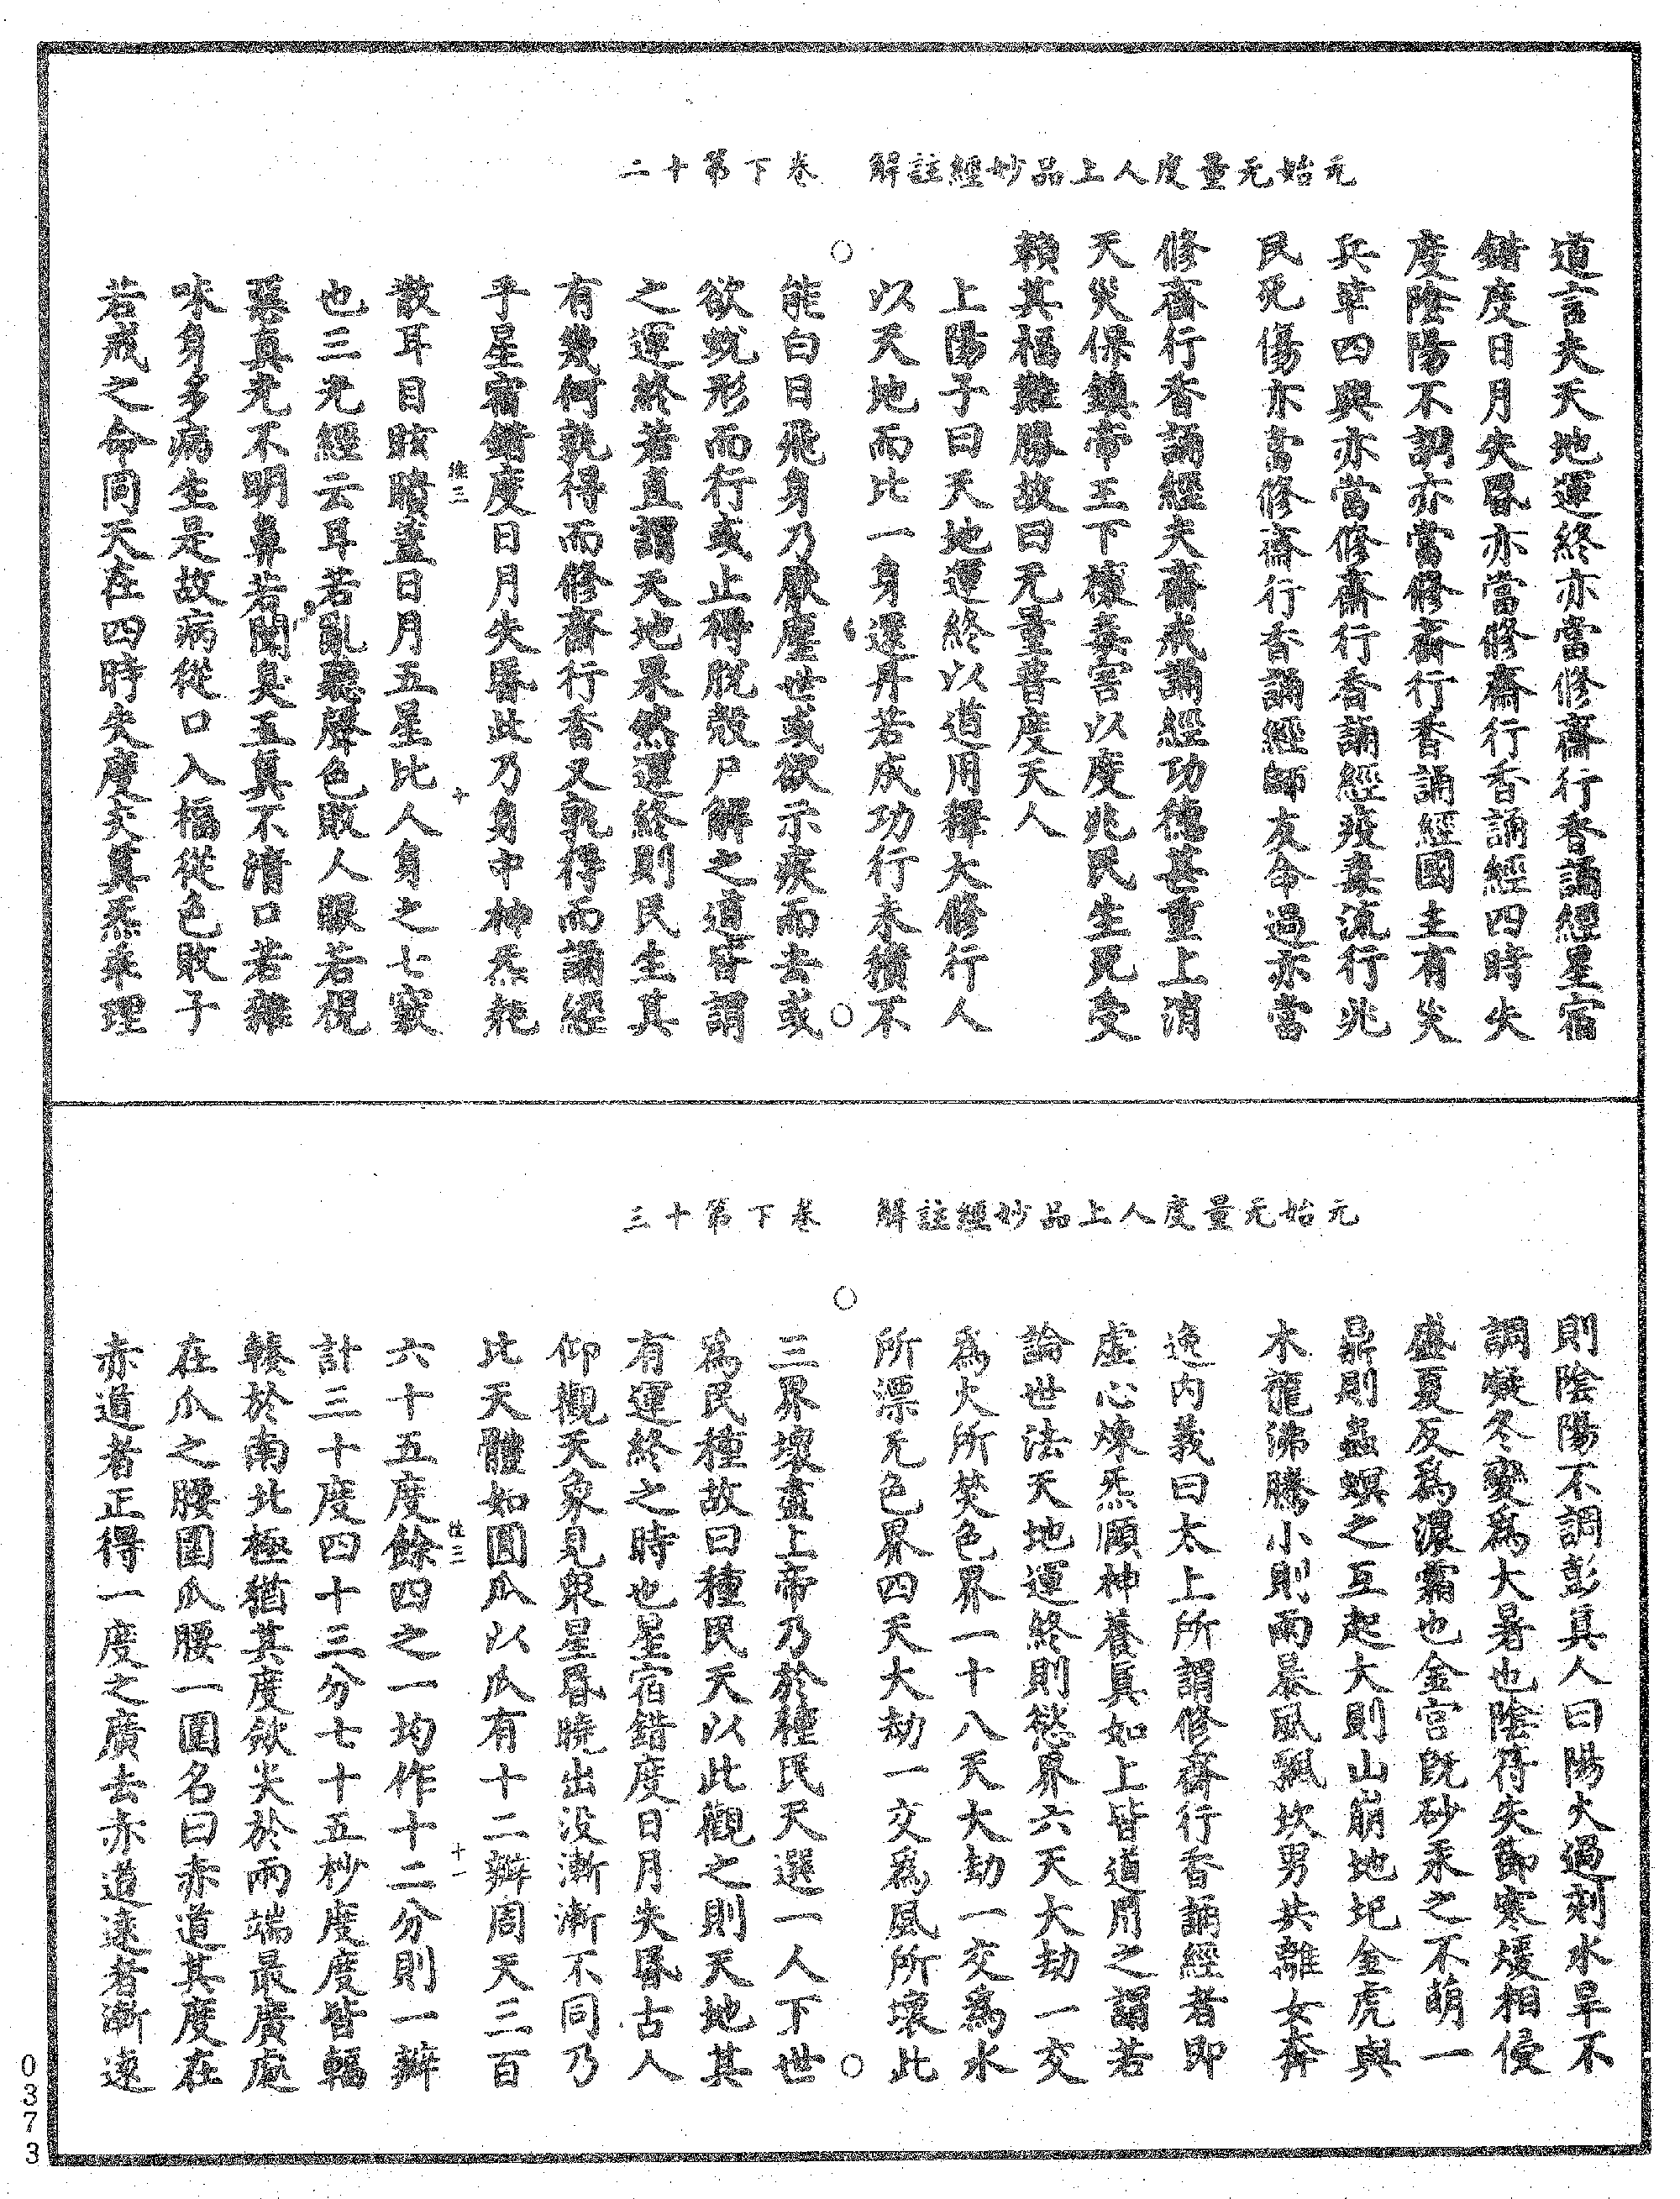 元始无量度人上品妙經註解　卷下第十二
道言夫天地運終亦當修齋行香誦經星宿
錯度日月失昬亦當修齋行香誦經四時失
度陰陽不調亦當修齋行香誦經國主有災
兵革四興亦當修齋行香誦經疫毒流行兆
民死傷亦當修齋行香誦經師友命過亦當
修齋行香誦經夫齋戒誦經功德甚重上消
天災保鎮帝王下禳毒害以度兆民生死受
賴其福難勝故曰无量普度天人
上陽子曰天地運終以道用釋大修行人
以天地而比一身還丹若成功行未積不
能白日飛身乃厭塵世或欲示疾而去或
欲蛻形而行或止得脫殼尸解之道皆謂
之運終若直謂天地果然運終則民生其
有幾何孰得而修齋行香又孰得而誦經
乎星宿錯度日月失昬此乃身中神炁耗
散耳目眩瞶蓋日月五星比人身之七竅
也三光經云耳若亂聽聲色敗人眼若視
惡真光不明鼻若聞臭五真不清口若雜
味身多病生是故病從口入福從色敗子
若戒之命同天在四時失度夫真炁乖理
元始无量度人上品妙經註解　卷下第十三
則陰陽不調彭真人曰陽火過刻水旱不
調凝冬變為大暑也陰符失節寒煖相侵
盛夏反為濃霜也金宮既砂汞之不萌一
鼎則蟲螟之互起大則山崩地圮金虎與
木龍沸騰小則雨暴風飄坎男共離女奔
逸內義曰太上所謂修齋行香誦經者即
虛心煉炁頤神養真如上皆道用之謂若
論世法天地運終則慾界六天大劫一交
為火所焚色界一十八天大劫一交為水
所漂无色界四天大劫一交為風所壞此
三界壞盡上帝乃於種民天選一人下世
為民種故曰種民天以此觀之則天地其
有運終之時也星宿錯度日月失昬古人
仰觀天象見衆星昬曉出没漸漸不同乃
比天體如圓瓜以瓜有十二瓣周天三百
六十五度餘四之一均作十二分則一瓣
計三十度四十三分七十五秒度度皆輻
輳於南北極猶其度斂尖於兩端最廣處
在瓜之腰圍瓜腰一圍名曰赤道其度在
赤道者正得一度之廣去赤道遠者漸遠
0373